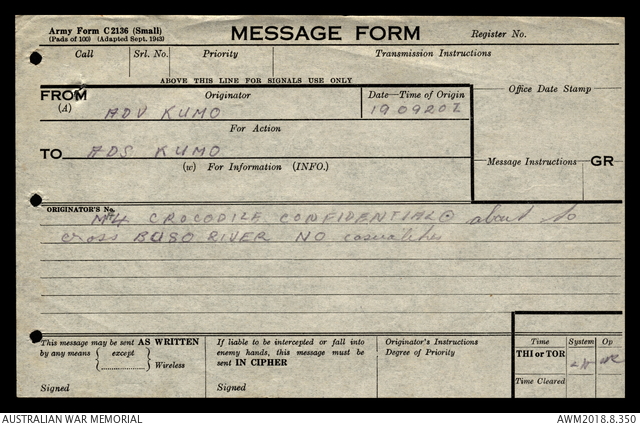 Army Form C2136 (Small)
(Pads of 100) (Adapted Sept. 1943)
MESSAGE FORM
Register No.
Call Srl. No. Priority Transmission Instructions
ABOVE THIS LINE FOR SIGNALS USE ONLY
Office Date Stamp
FROM Originator Date—Time of Origin
(A) ADV KUMO 190920Z
For Action
TO ADS KUMO
(w) For Information (INFO.)
Message Instructions GR
ORIGINATOR'S No.
CROCODILE CONFIDENTIAL about to
cross BUSO RIVER NO casualties
This message may be sent AS WRITTEN
by any means except
Wireless
Signed
If liable to be intercepted or fall into
enemy hands, this message must be
sent IN CIPHER
Signed
Originator's Instructions
Degree of Priority
Time System Op
THI or TOR
Time Cleared
AUSTRALIAN WAR MEMORIAL AWM2018.8.350